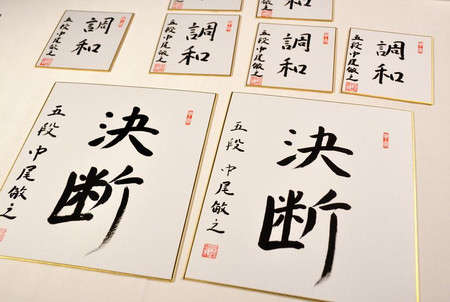 調和
五段 中尾敏之
調和
五段 中尾敏之
調和
五段 中尾敏之
調和
五段 中尾敏之
決断
五段 中尾敏之
決断
五段 中尾敏之